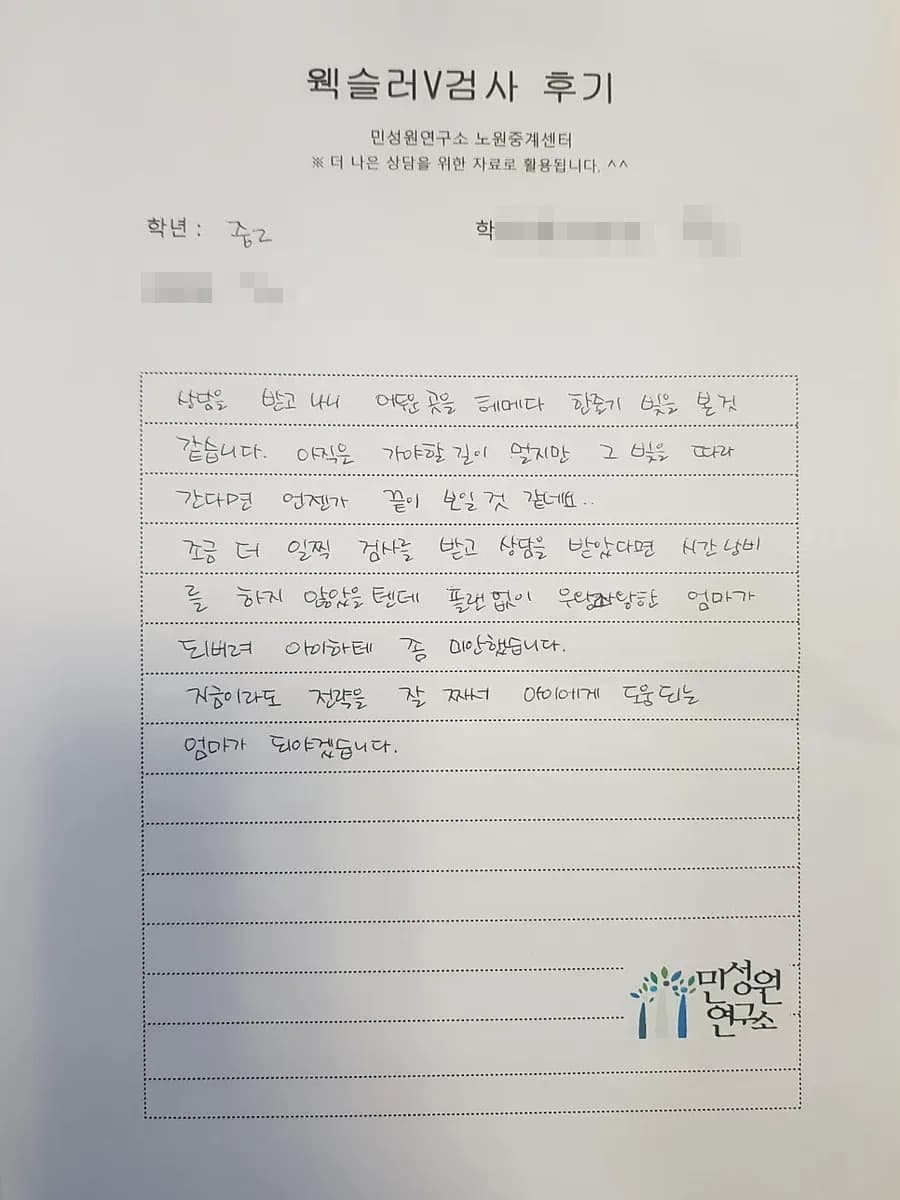 웩슬러V검사 후기
민성원연구소 노원중계센터
※ 더 나은 상담을 위한 자료로 활용됩니다. ^^
학년 : 중2
학
상담을 받고 나니 어두운 곳을 헤메다 한줄기 빛을 본것
같습니다. 아직은 가야할 길이 멀지만 그 빛을 따라
간다면 언젠가 끝이 보일 것 같네요..
조금 더 일찍 검사를 받고 상담을 받았다면 시간 낭비
를 하지 않았을 텐데 플랜 없이 우왕좌왕한 엄마가
되버려 아이한테 좀 미안했습니다.
지금이라도 전략을 잘 짜서 아이에게 도움되는
엄마가 되야겠습니다.
민성원
연구소